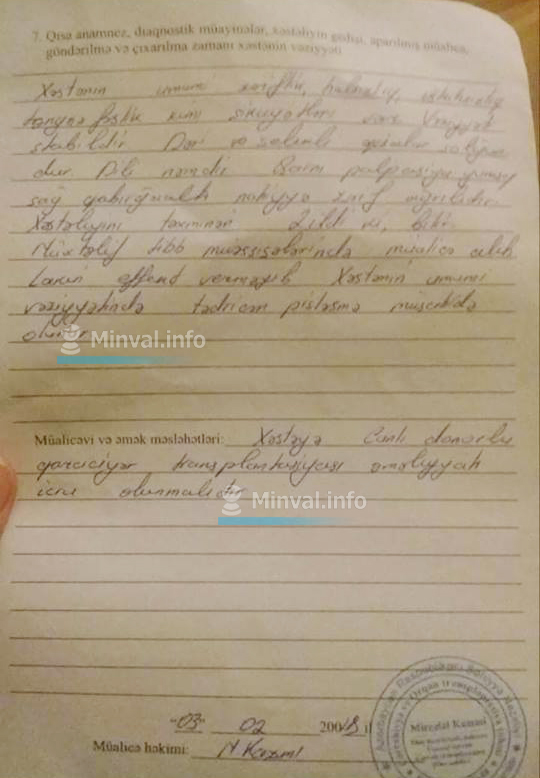 7. Qısa anamnez, diaqnostik müayinələr, xəstəliyin gedişi, aparılmış müalicə,
göndərilmə və çıxarılma zamanı xəstənin vəziyyəti
Xəstənin umumi zəiflik, halsızlıq, iştahsızlıq
təngnəfəslik kimi şikayətləri var. Vəziyyəti
stabildir. Dəri və
dur. Dili nəmdir. Qarnı palpasiya yumşaq
sağ qabırğaaltı nahiyyə zəif ağrılıdır.
Xəstəliyini təxminən 2 ildi ki, bilir.
Müxtəlif tibb müəssisələrində müalicə alıb
Lakin effekt verməyib Xəstənin umumi
vəziyyətində tədricən pisləşmə muşahidə
olunur
Minval.info
Müalicəvi və əmək məsləhətləri: Xəstəyə Canlı donorlu
qaraciyər transplantasiyası əməliyyatı
icra olunmalıdır
Minval.info
"03" 02 2018 il
Müalicə həkimi: M Kazımi
Azərbaycan Respublikası Səhiyyə Nazirliyi
Mircəlal Kazımi